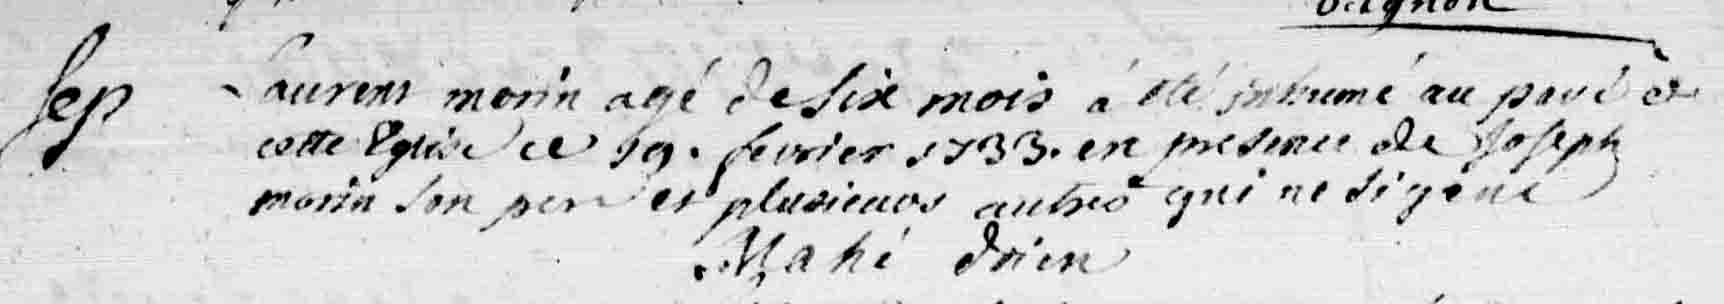 Sep
Laurent morin agé de six mois á été inhumé au pavé de
cette Eglise ce 19. fevrier 1733. en presence de Joseph
morin son pere et plusieurs autres qui ne signe
Mahé doien